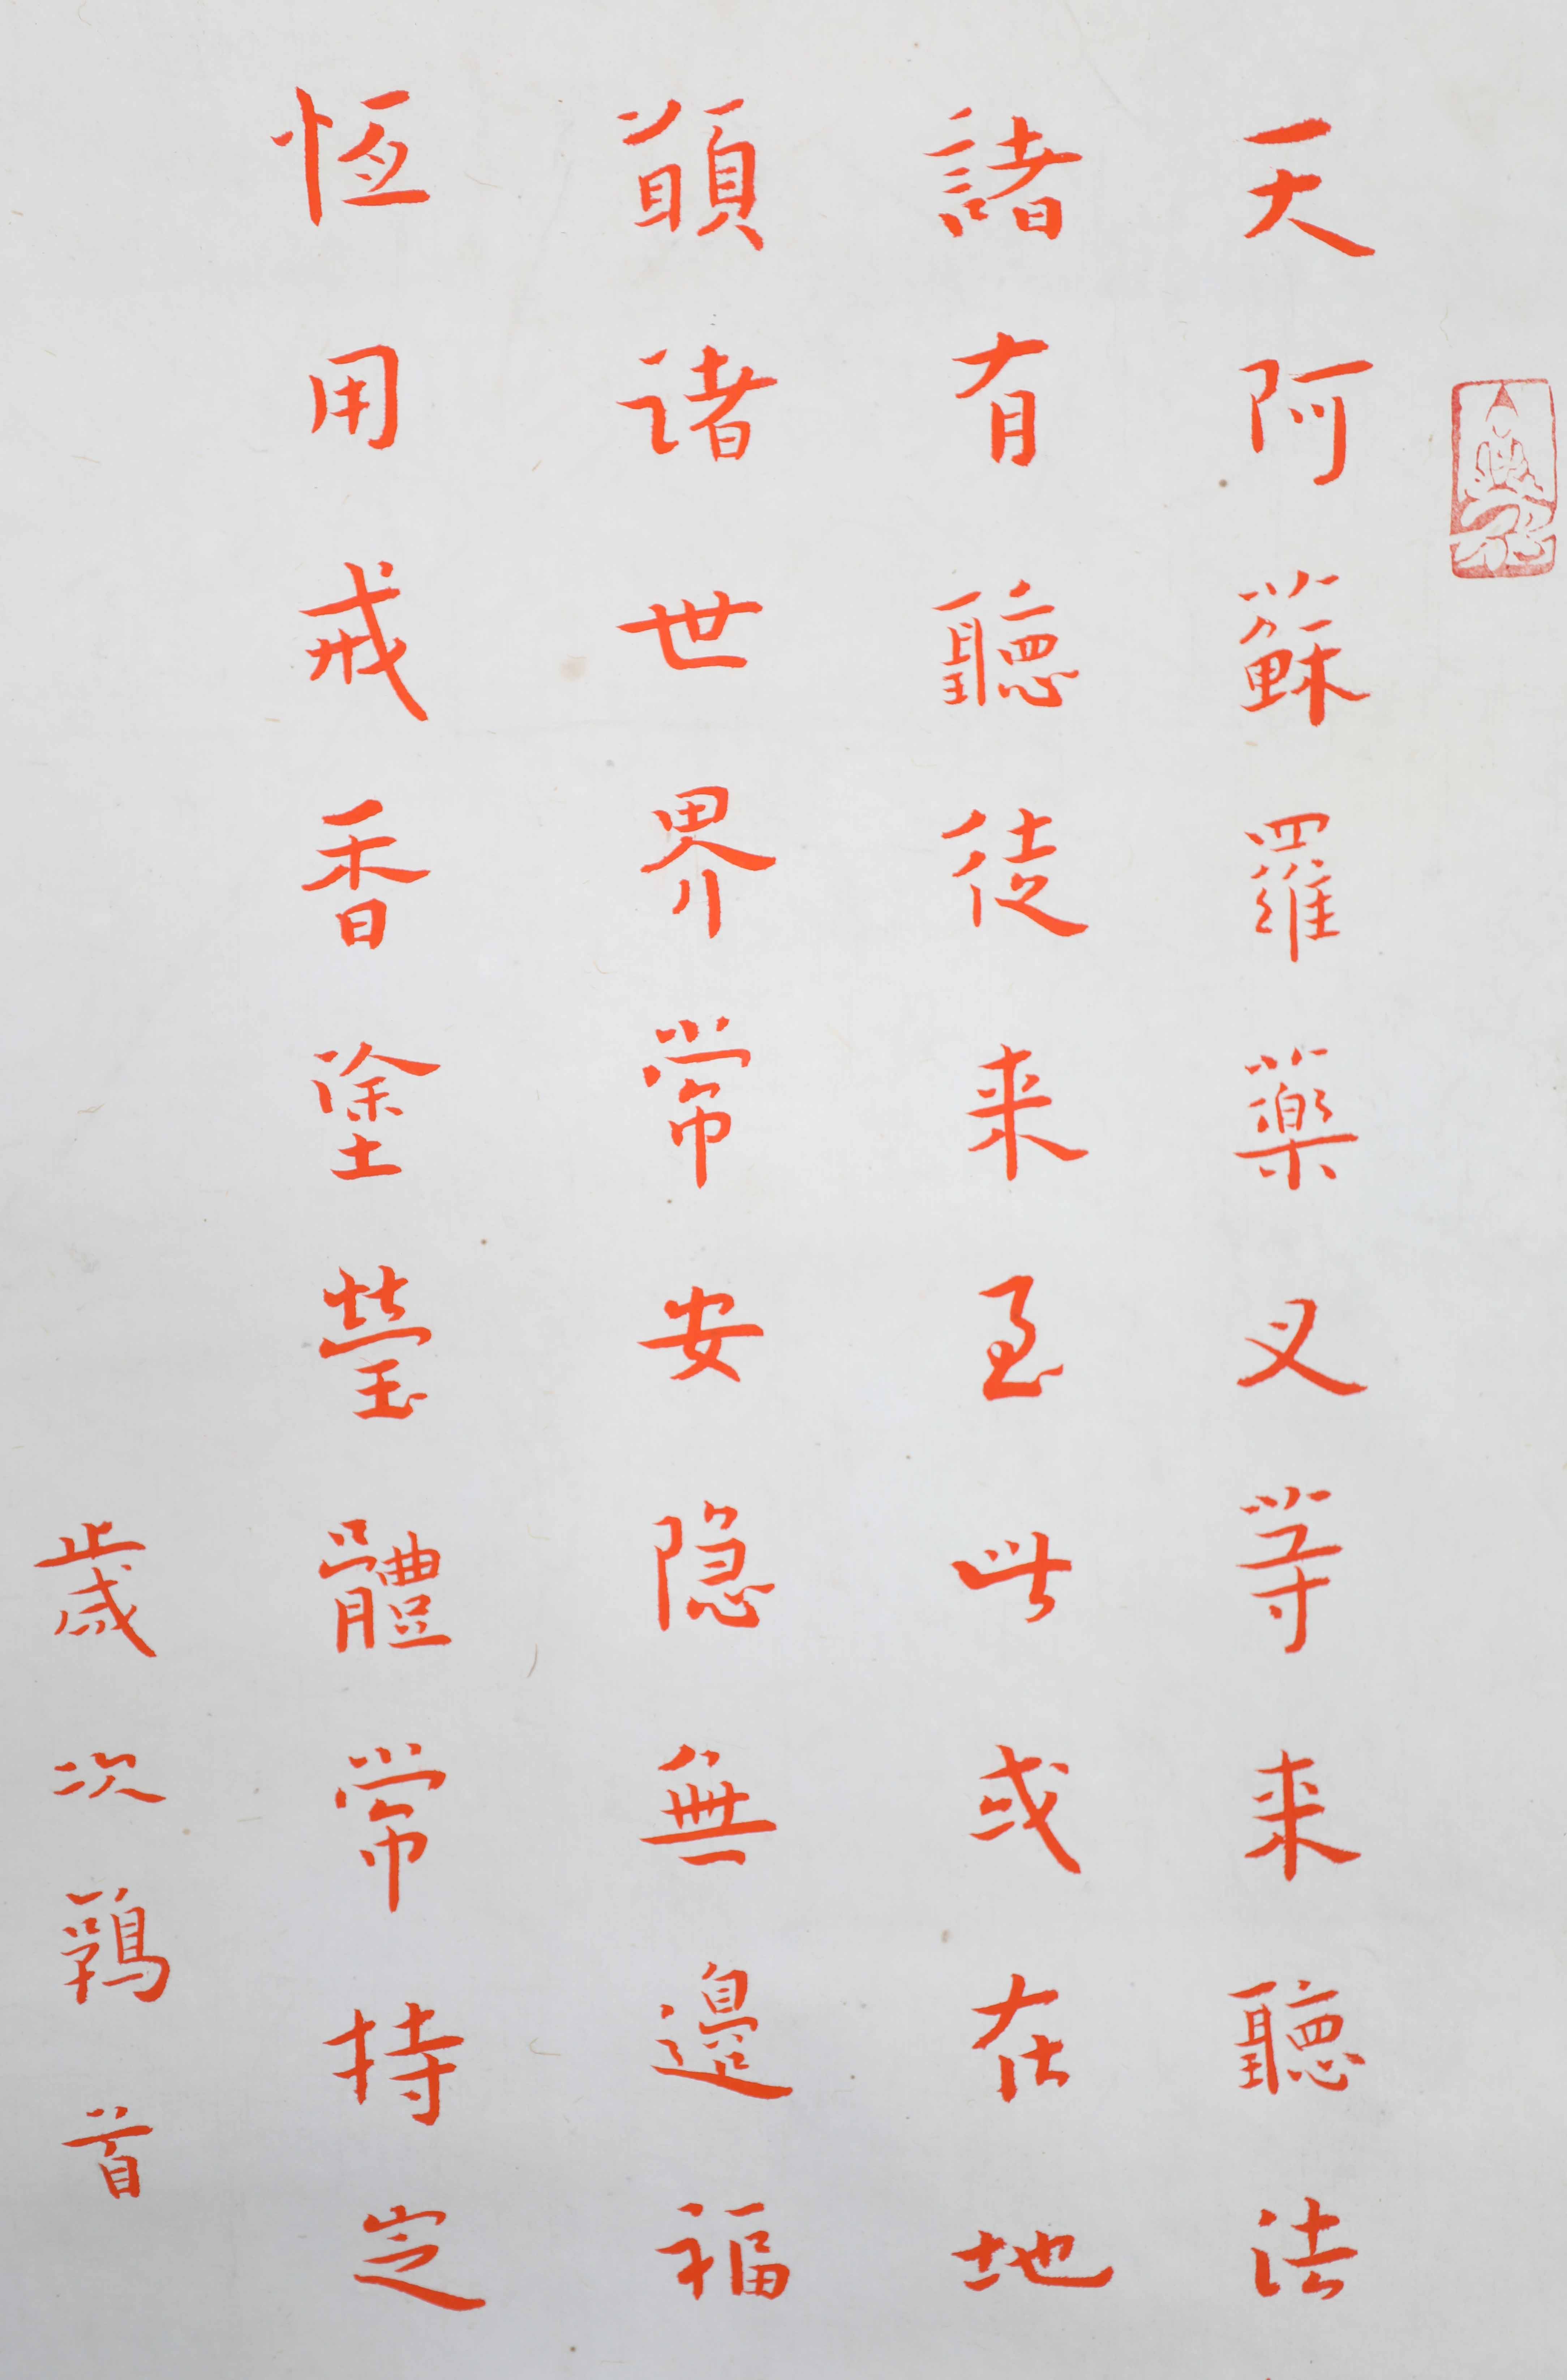 天阿蘇羅藥叉等来聽法
諸有聽徒来至此或在地
願諸世界常安隐無邊福
恆用戒香塗瑩體常持定
歲次鶉首